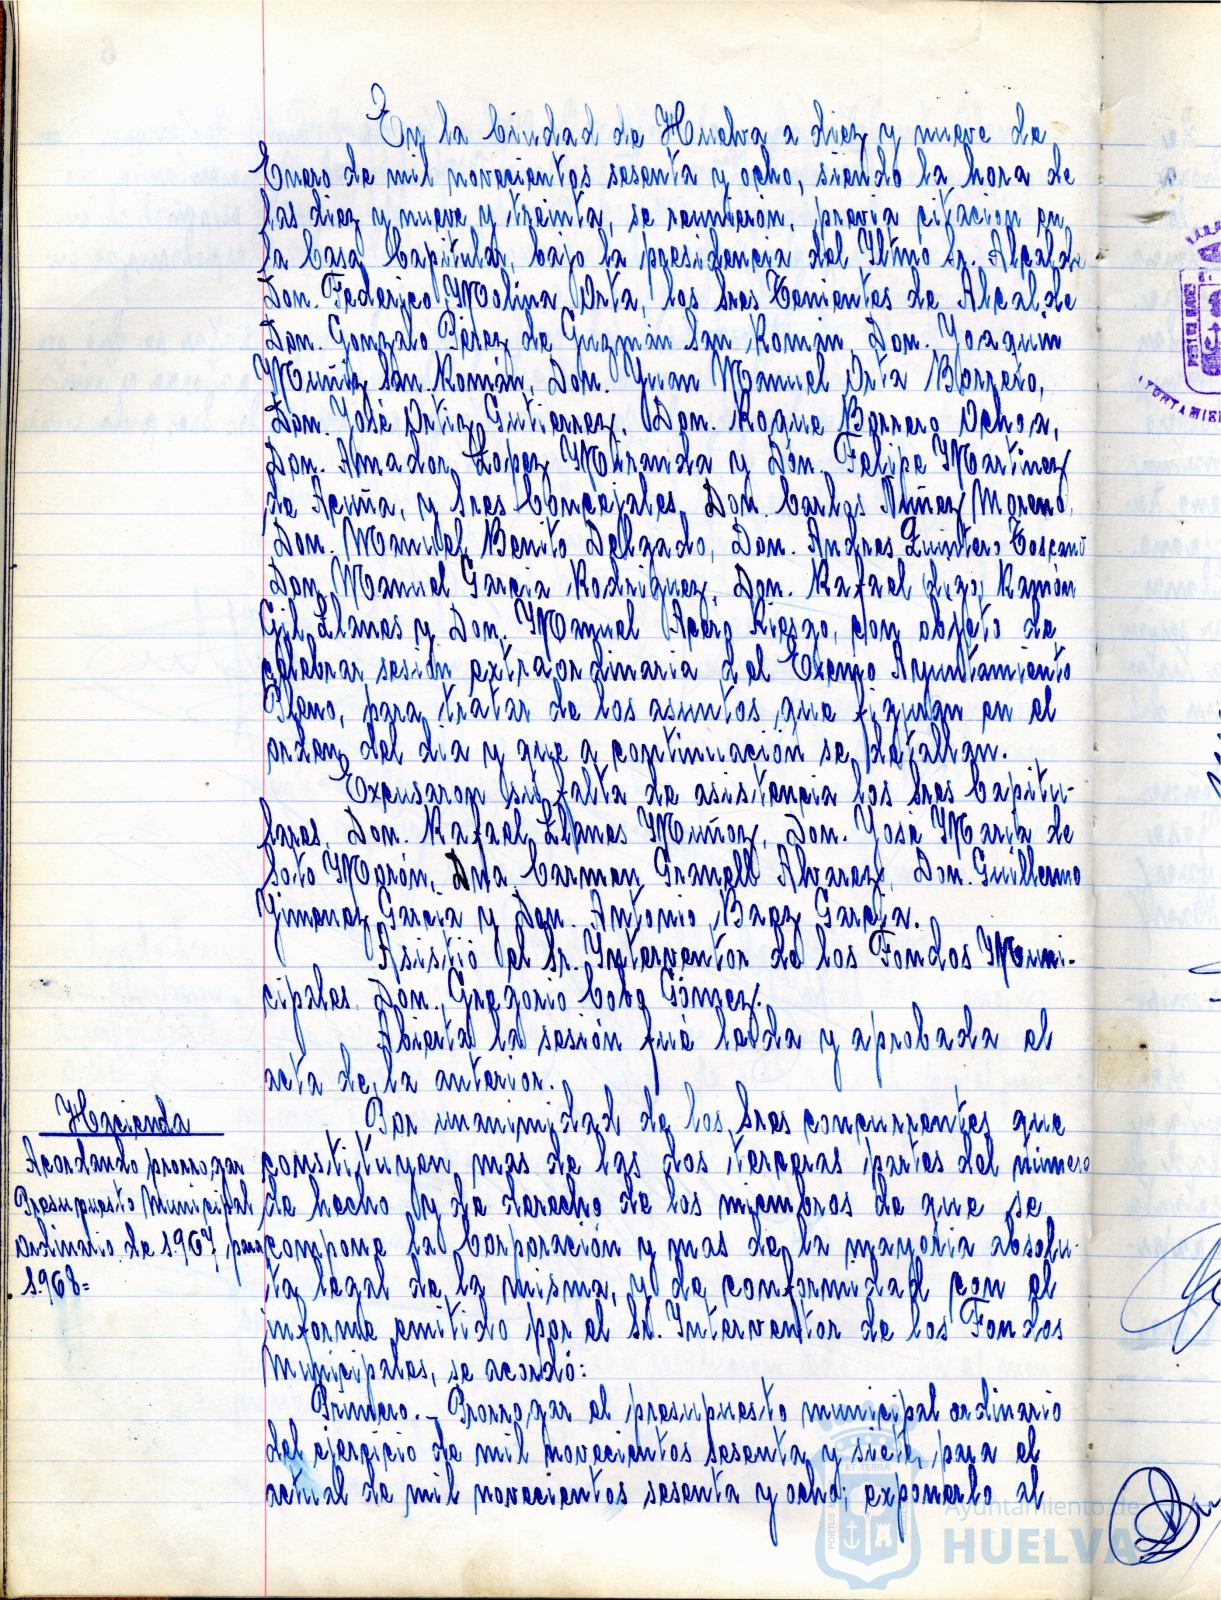 En la Ciudad de Huelva a diez y nueve de
Enero de mil novecientos sesenta y ocho, siendo la hora de
las diez y nueve y treinta, se reunieron, previa citacion en
la Casa Capitular, bajo la presidencia del Iltmo Sr. Alcalde
Don. Federico Molina Orta, los Sres Tenientes de Alcalde
Don. Gonzalo Pérez de Guzmán San Román, Don. Joaquin
Muñiz San Román, Don. Juan Manuel Orta Borrero,
Don. José Ortiz Gutierrez, Don. Roque Borrero Ochoa,
Don. Amador Lopez Miranda y Don. Felipe Martinez
de Acuña, y Sres Concejales, Don. Carlos Nuñez Moreno,
Don. Manuel Benito Delgado, Don. Andres Quintero Toscano
Don. Manuel Garcia Rodriguez, Don. Rafael digo, Ramón
Gil Llanes y Don. Manuel Acero Riesgo, con objeto de
celebrar sesión extraordinaria del Excmo Ayuntamiento
Pleno, para tratar de los asuntos que figuran en el
orden del dia y que a continuación se detallan.
Excusaron su falta de asistencia los Sres Capitu-
lares, Don. Rafael Llanes Muñoz, Don. José Maria de
Soto Morón, Dña Carmen Granell Alvarez, Don. Guillermo
Jimenez Garcia y Don. Antonio Baez Garcia.
Asistió el Sr. Interventor de los Fondos Muni-
cipales. Don. Gregorio Cobo Gómez.
Abierta la sesión fué leida y aprobada el
acta de la anterior.
Hacienda
Acordando prorrogar
Presupuesto Municipal
ordinario de 1.967, para
1.968=
Por unanimidad de los Sres concurrentes que
constituyen mas de las dos terceras partes del número
de hecho y de derecho de los miembros de que se
compone la Corporación y mas de la mayoria absolu-
ta legal de la misma, y de conformidad con el
informe emitido por el Sr. Interventor de los Fondos
Municipales, se acordó:
Primero.- Prorrogar el presupuesto municipal ordinario
del ejercicio de mil novecientos sesenta y siete, para el
actual de mil novecientos sesenta y ocho; exponerlo al
Ayuntamiento de
HUELVA